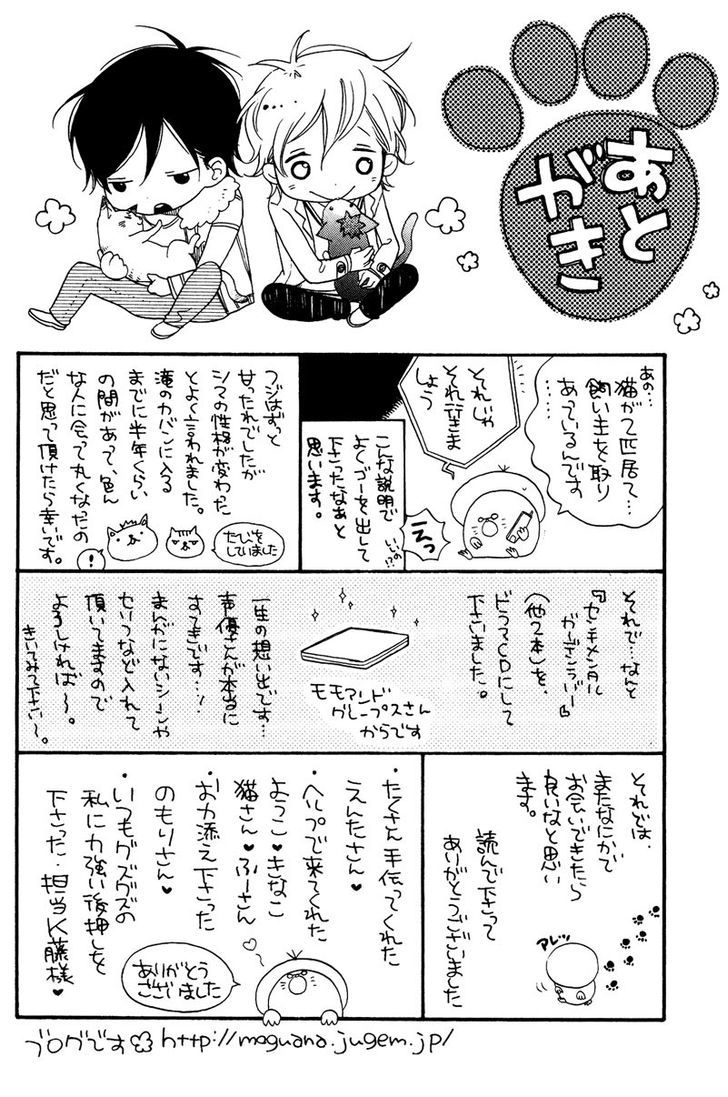 あと
がき
あの…
猫が2匹居て…
飼い主を取り
あっているんです
それじゃ
それで行きま
しょう
えっ
いいの!?
こんな説明で
よくゴーを出して
下さったなぁと
思います。
フジはずっと
甘ったれでしたが
シマの性格が変わった
とよく言われました。
滝のカバンに入る
までに半年くらい
の間があって、色ん
な人に会って丸くなったの
だと思って頂けたら幸いです。
たびを
していました
!
それで…なんと
『センチメンタル
ガーデンラバー』
(他2本)を、
ドラマCDにして
下さいました。
モモアンド
グレープスさん
からです
一生の想い出です…
声優さんが本当に
すてきです…!
まんがにないシーンや
セリフなど入れて
頂いてますので
よろしければ〜。
きいてみて下さい〜。
それでは、
またなにかで
お会いできたら
良いなと思い
ます。
読んで下さって
ありがとうございました
アレッ
・たくさん手伝ってくれた
えんたさん♥
・ヘルプで来てくれた
ようこ♥きなこ
猫さん♥ふーさん
お力添え下さった
のもりさん♥
・いつもグズグズの
私に力強い後押しを
下さった…担当K藤様♥
ありがとう
ございました
ブログです http://moguana.jugem.jp/